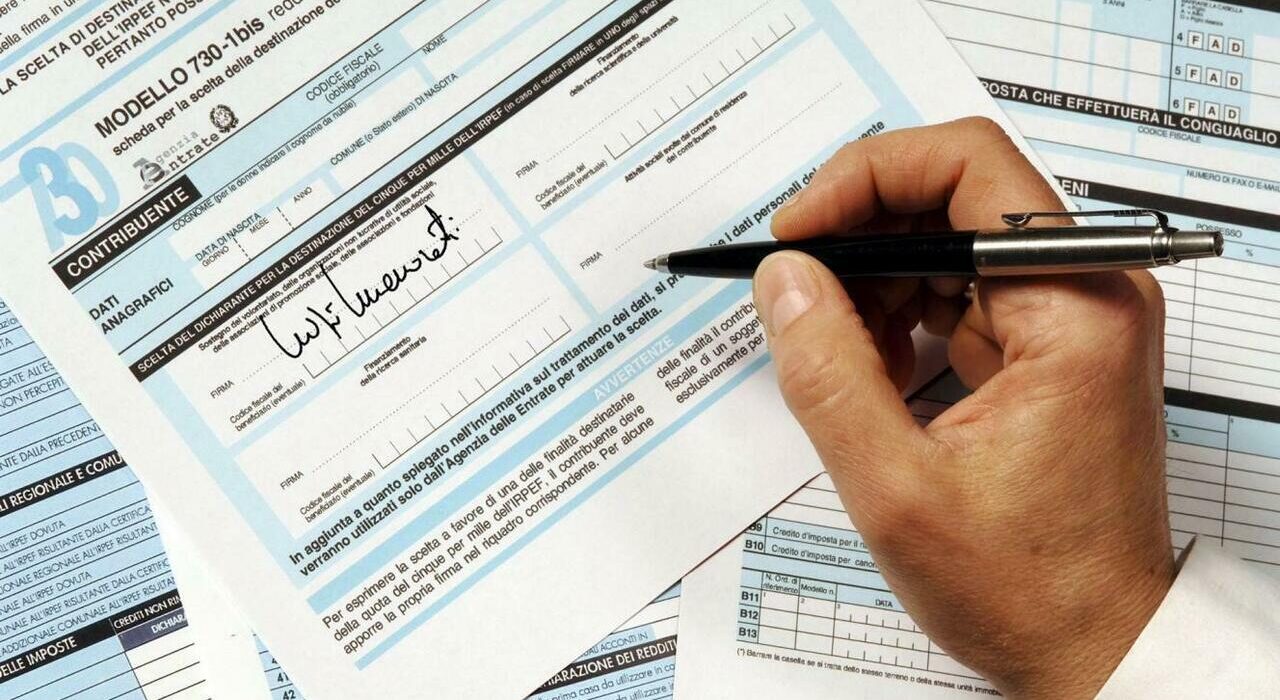 LA SCELTA DI DESTINA
DELL'IRPEF N
PERTANTO POSS
MODELLO 730-1bis
scheda per la scelta della destinazione d
730
Agenzia
Entrate
CONTRIBUENTE
CODICE FISCALE
(obbligatorio)
COGNOME (per le donne indicare il cognome da nubile)
NOME
DATI
ANAGRAFICI
DATA DI NASCITA
GIORNO
MESE
ANNO
COMUNE (o Stato estero) DI NASCITA
SCELTA DEL DICHIARANTE PER LA DESTINAZIONE DEL CINQUE PER MILLE DELL'IRPEF (in caso di scelta FIRMARE in UNO degli spazi
Sostegno del volontariato, delle organizzazioni non lucrative di utilità sociale,
delle associazioni di promozione sociale, delle associazioni e fondazioni
FIRMA
Codice fiscale del
beneficiario (eventuale)
Finanziamento
della ricerca scientifica e della università
FIRMA
Codice fiscale del
beneficiario (eventuale)
Finanziamento
della ricerca sanitaria
FIRMA
Codice fiscale del
beneficiario (eventuale)
Attività sociali svolte dal comune di residenza
del contribuente
FIRMA
In aggiunta a quanto spiegato nell'informativa sul trattamento dei dati, si pr
che i dati personali del
verranno utilizzati solo dall'Agenzia delle Entrate per attuare la scelta.
AVVERTENZE
Per esprimere la scelta a favore di una delle finalità destinatarie
della quota del cinque per mille dell'IRPEF, il contribuente deve
apporre la propria firma nel riquadro corrispondente. Per alcune
delle finalità il contribu
fiscale di un sogge
esclusivamente per
4 F A D
5 F A D
6 F A D
POSTA CHE EFFETTUERÀ IL CONGUAGLIO
CODICE FISCALE
NUMERO DI FAX O E-MA
ENI
POSSESSO
%
NTE DALLA PRECEDEN
LI REGIONALE E COMU
ALL'IRPEF DOVUTA
ALL'IRPEF RISULTANTE DALLA CERTIFICA
REGIONALE ALL'IRPEF DOVUTA
NALE ALL'IRPEF RISULTANTE DALLA CERTIFIC
ADDIZIONALE COMUNALE ALL'IRPEF DOVUTA
CREDITI NON RIM
DICHIAR
ELLE IMPOSTE
41
42
ALL'ACCONTO IN
DICHIARAZIONE DEI REDDITI
prima casa da utilizzare
B9
Credito d'imposta per il r
B10
Credito d'imposta per canon
N. Ord. di
riferimento
Modello n.
DATA
B11
B12
B13
(*) Barrare la casella se si tratta dello stesso terreno o della stessa unità immo